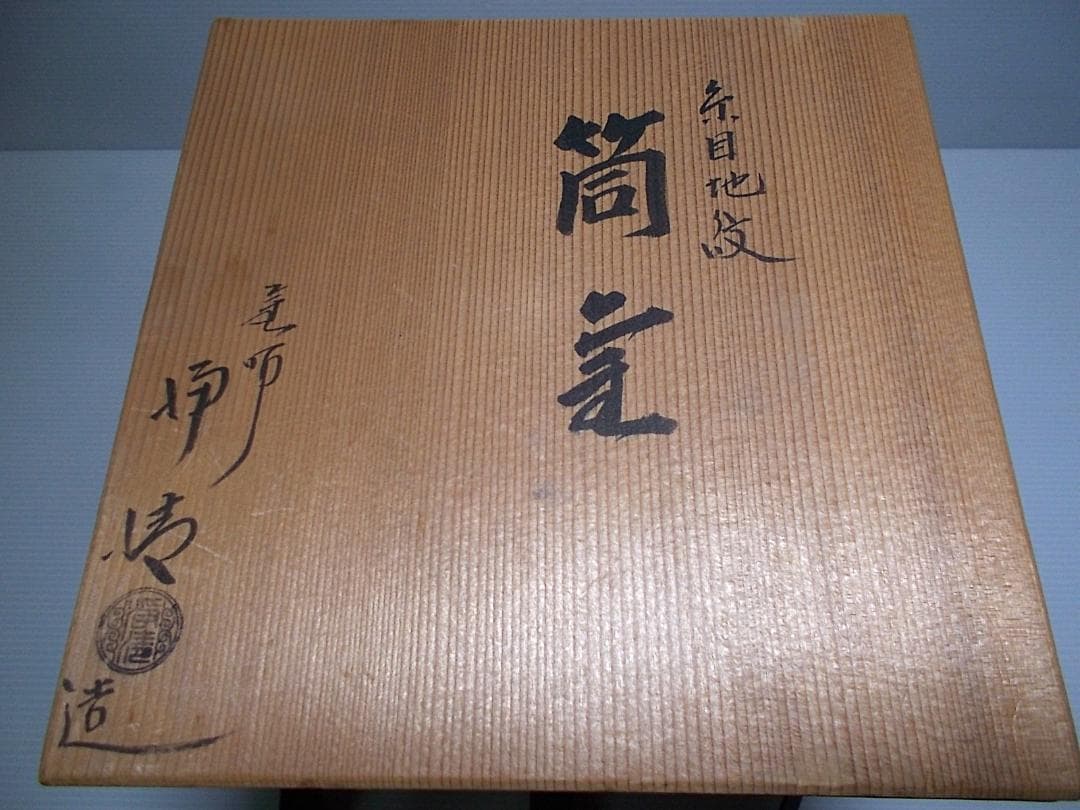 糸目地紋
筒釜
釜師
浄清
造